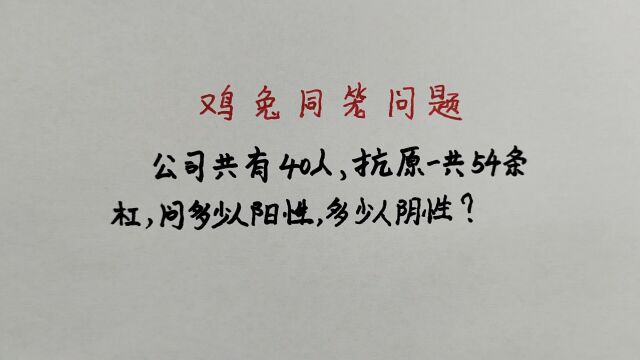 鸡兔同笼问题
公司共有40人,抗原一共54条
杠,问多少人阳性,多少人阴性?